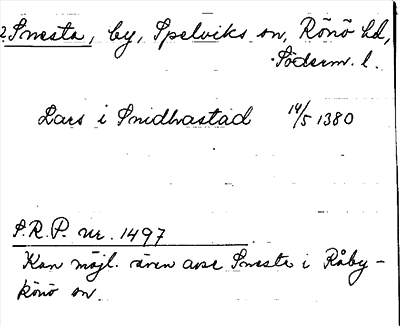 2. Snesta, by, Spelviks sn, Rönö hd,
Söderm. l.
Lars i Snidhrastad 14/5 1380
S.R.P. nr. 1497
Kan möjl. även avse Snesta i Råby-
Rönö sn.